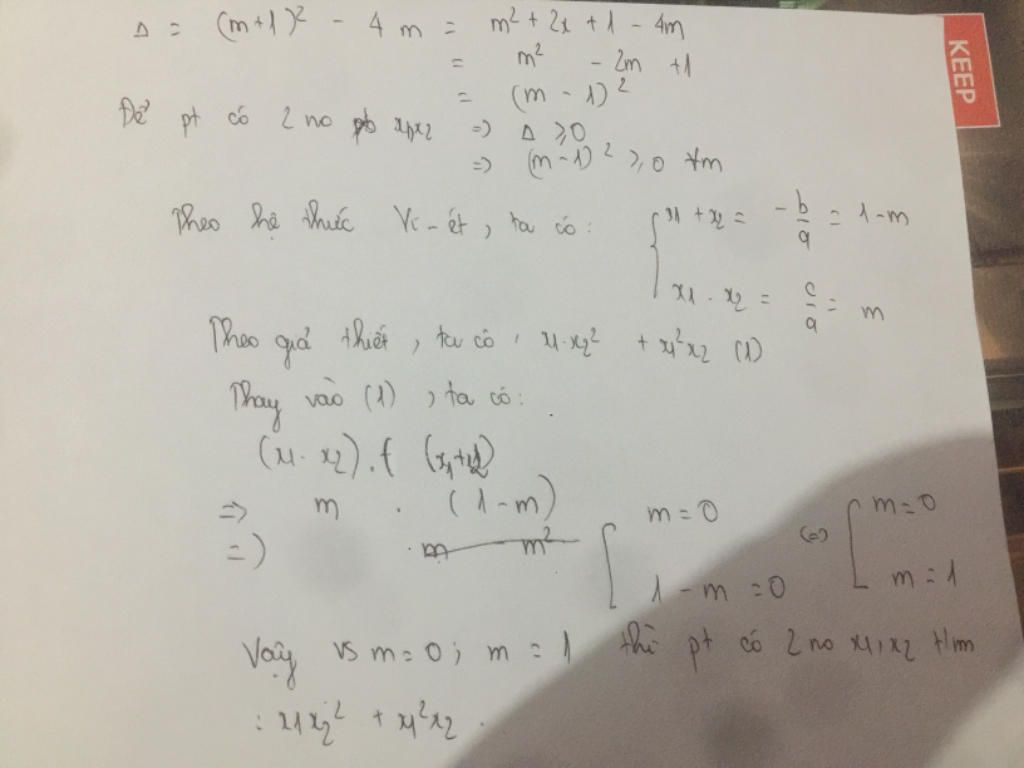 Δ = (m+1)² - 4m = m² + 2x + 1 - 4m
= m² - 2m + 1
= (m - 1)²
KEEP
Để pt có 2 no x1,x2 => Δ ≥ 0
=> (m-1)² ≥ 0 ∀m
Theo hệ thức Vi-ét, ta có: { x1 + x2 = -b/a = 1-m
x1 . x2 = c/a = m
Theo giả thiết, ta có, x1.x2² + x1²x2 (1)
Thay vào (1), ta có:
(x1. x2).( (x1+x2)
=> m . (1-m)
=> m - m² [ m = 0 <=> [ m = 0
1 - m = 0 m = 1
Vậy vs m = 0; m = 1 thì pt có 2 no x1,x2 t/m
: x1x2² + x1²x2.